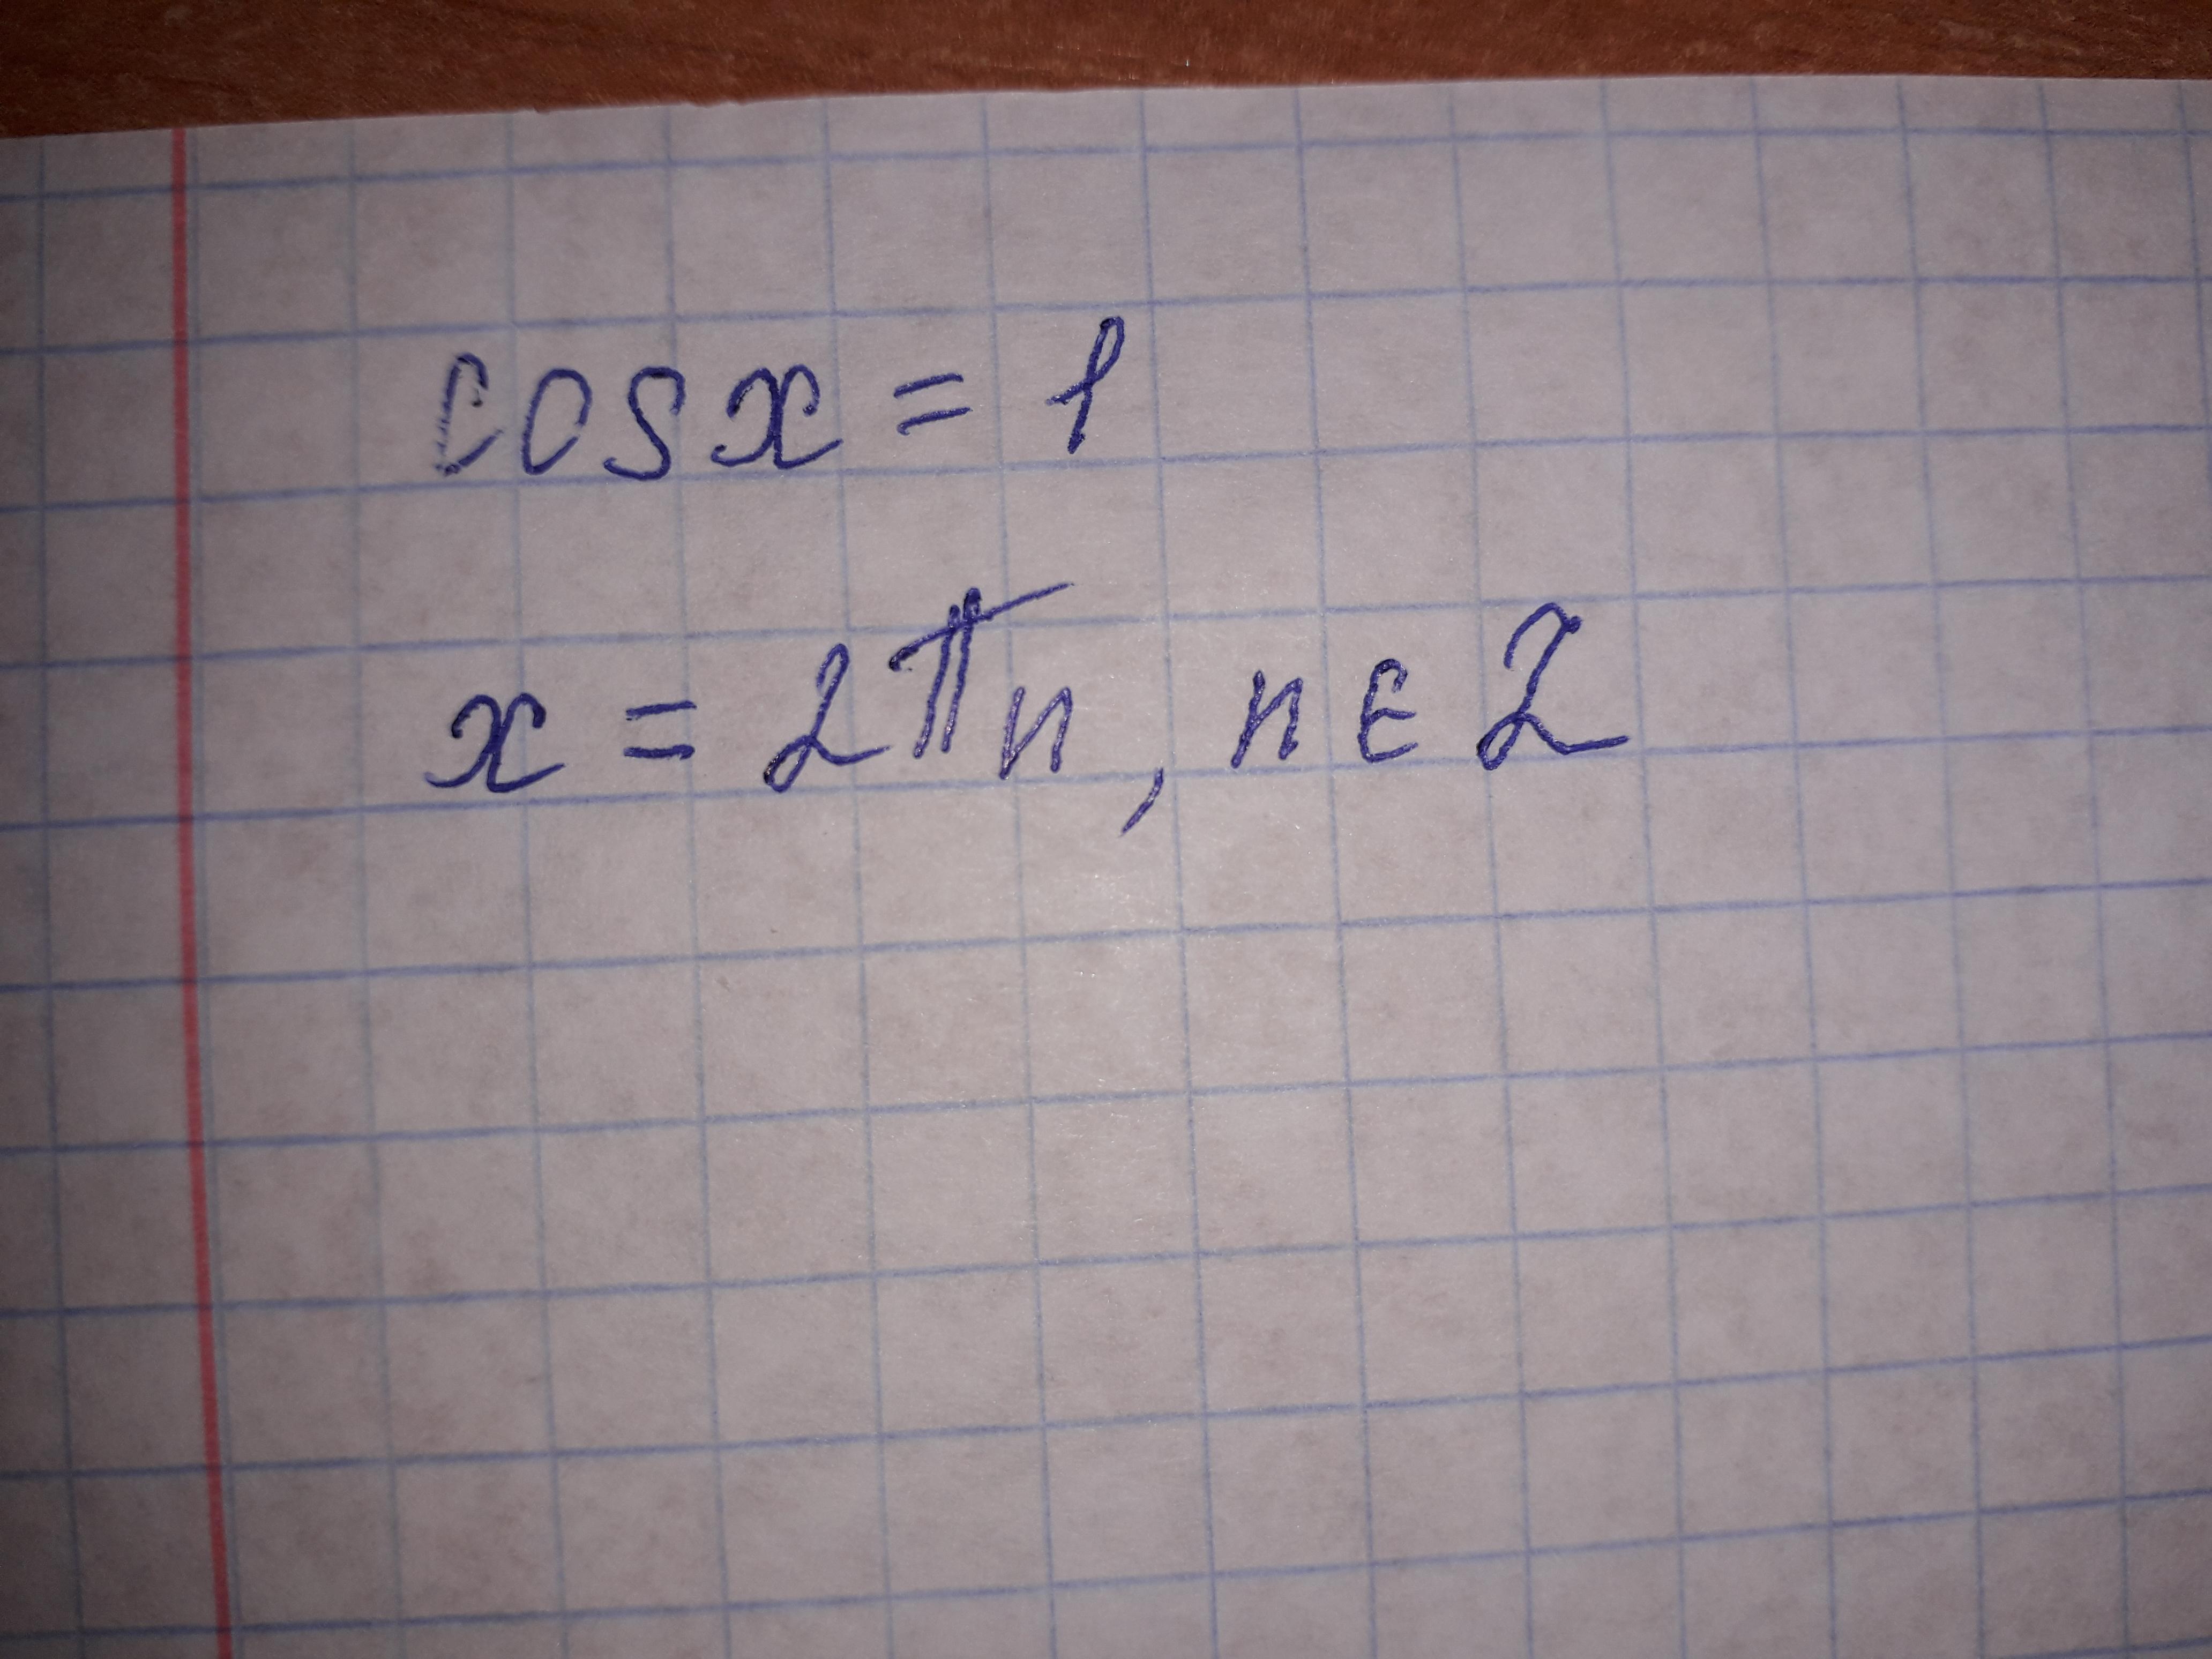 cos x = 1
x = 2πn, n ∈ Z